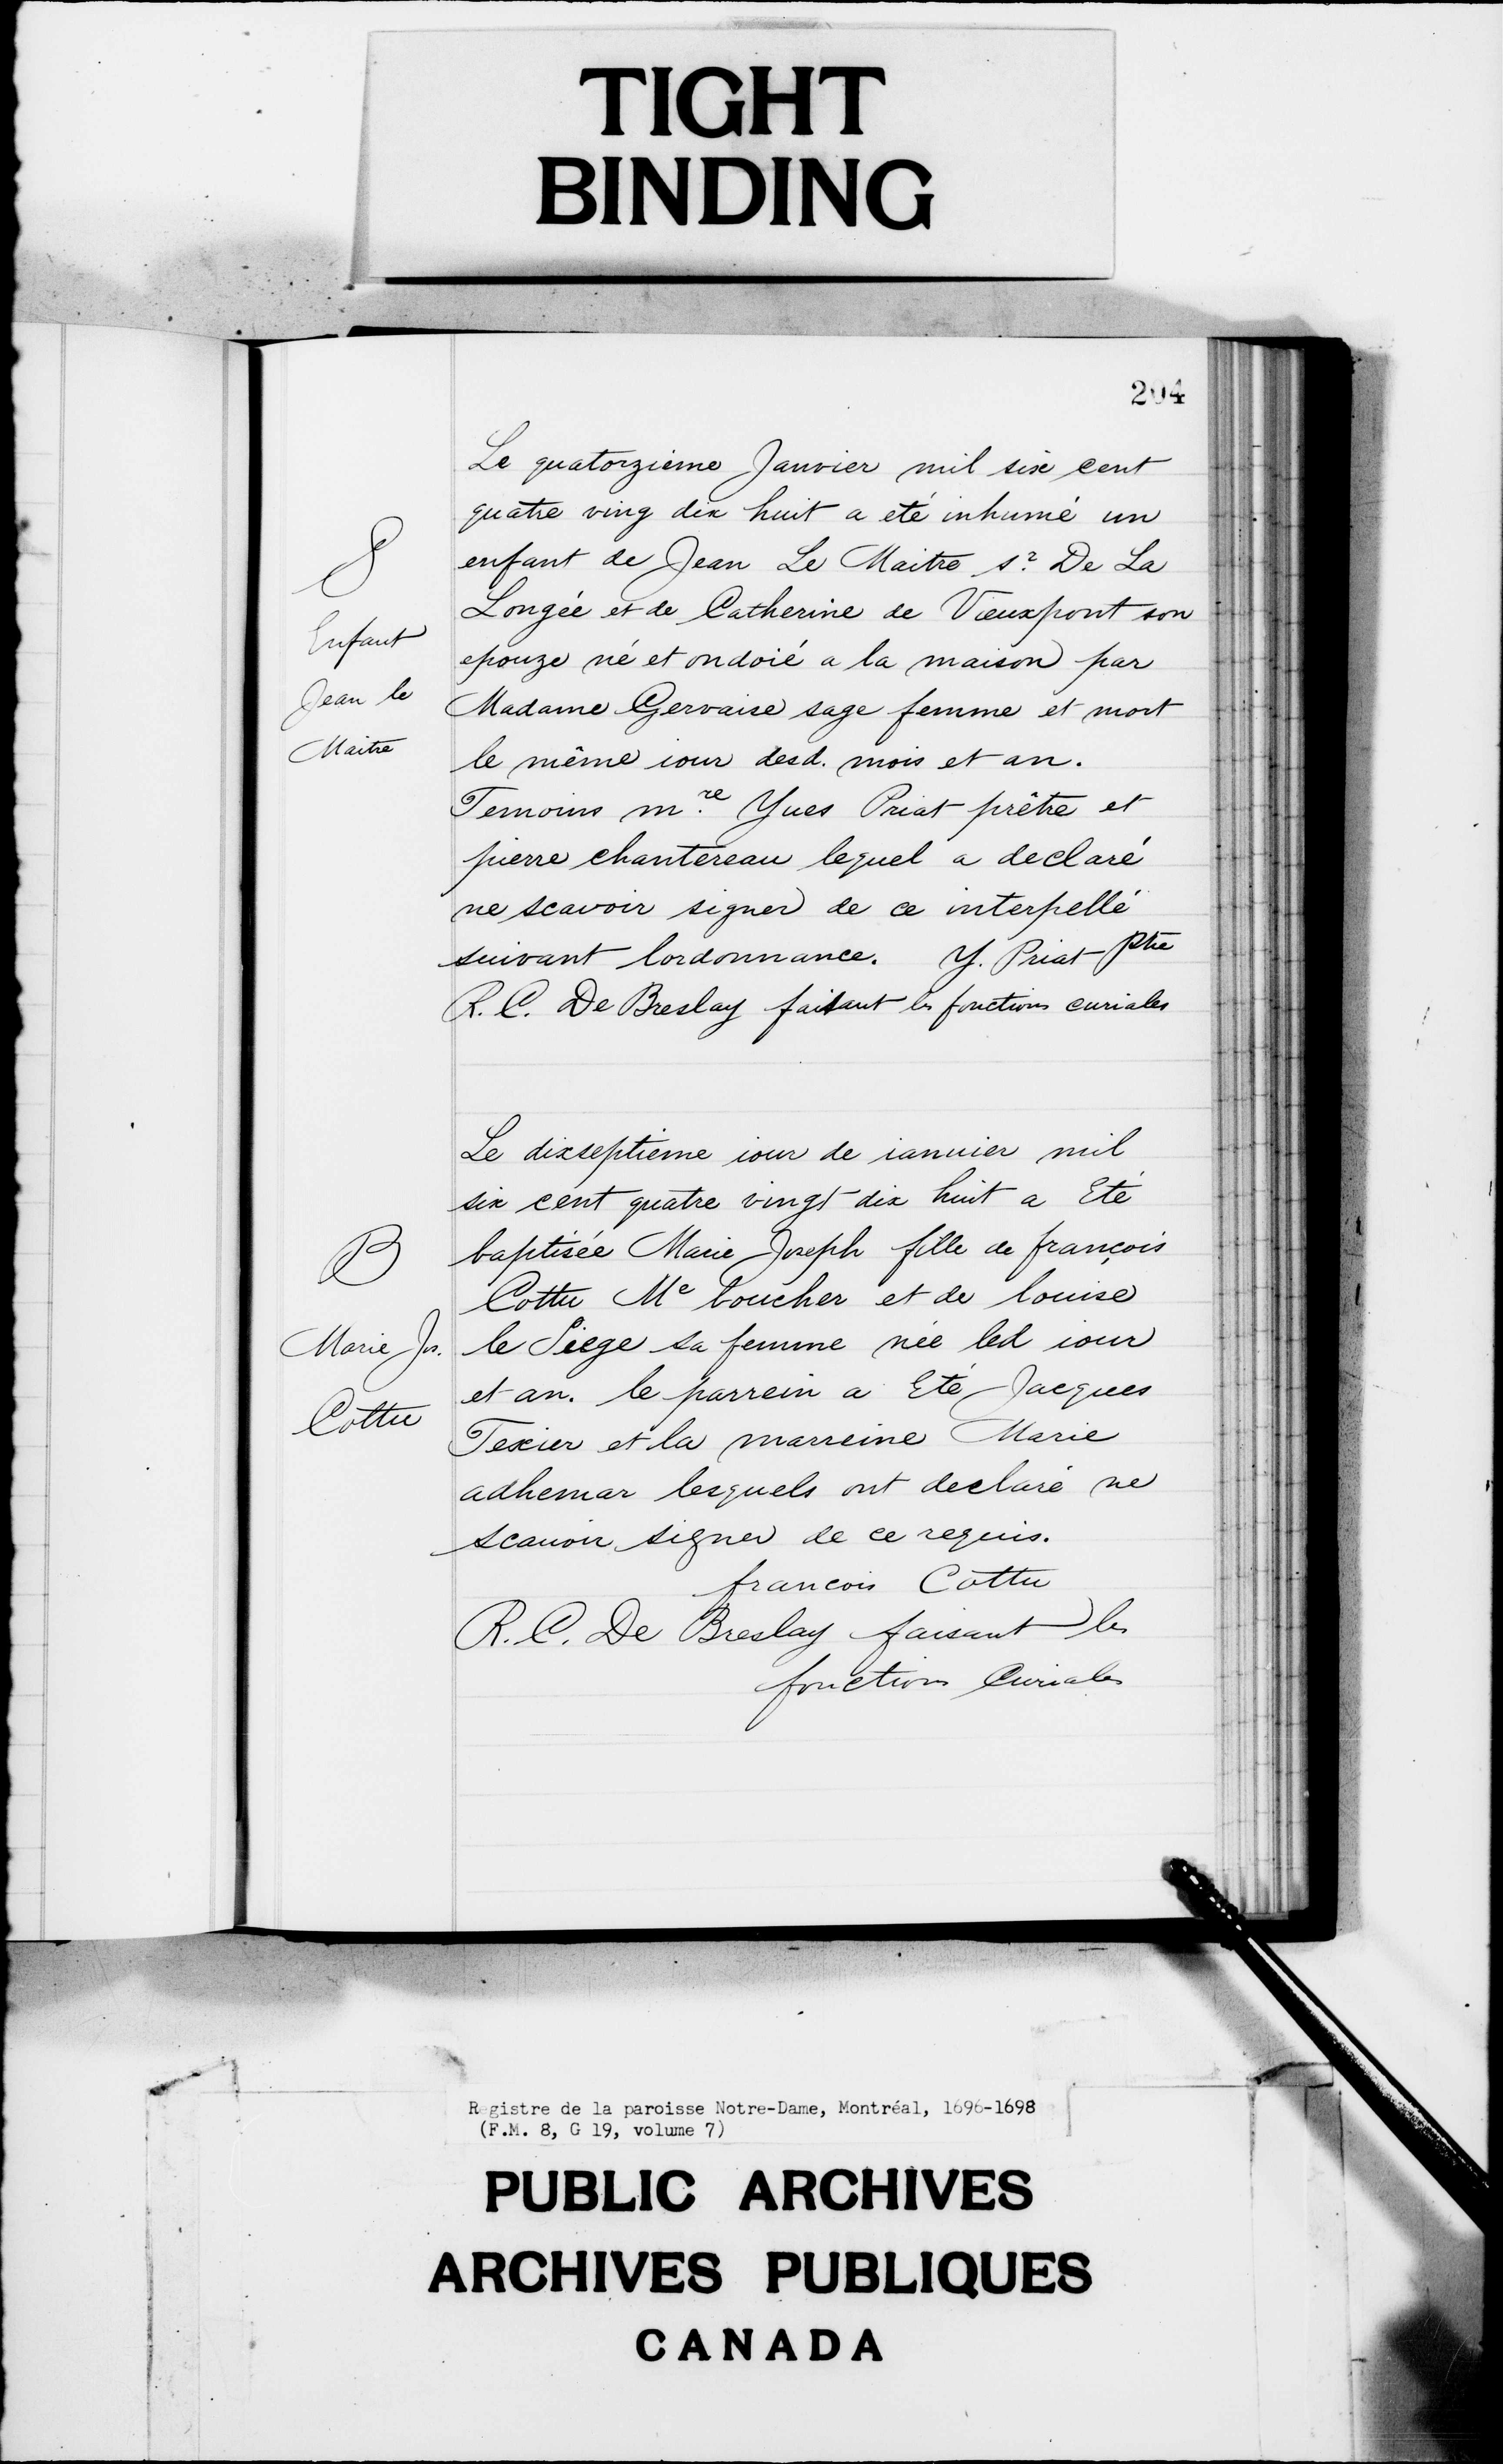 TIGHT
BINDING
204
Le quatorzieme Janvier mil six cent
quatre ving dix huit a eté inhumé un
enfant de Jean Le Maitre sr. De La
Longée et de Catherine de Vieuxpont son
epouze né et ondoié a la maison par
Madame Gervaise sage femme et mort
le même iour desd. mois et an.
Temoins m.re Yues Priat prêtre et
pierre chantereau lequel a declaré
ne scavoir signer de ce interpellé
suivant lordonnance. Y. Priat ptre
R. C. De Breslay faisant les fonctions curiales
S
Enfant
Jean le
Maitre
Le dixseptieme iour de ianuier mil
six cent quatre vingt dix huit a Eté
baptisée Marie Joseph fille de françois
Cottu Me boucher et de louise
le Siege sa femme née led iour
et an. le parrein a Eté Jacques
Texier et la marreine Marie
adhemar lesquels ont declaré ne
scauoir signer de ce requis.
francois Cottu
R. C. De Breslay faisant les
fonctions Curiales
B
Marie Jos.
Cottu
Registre de la paroisse Notre-Dame, Montréal, 1696-1698
(F.M. 8, G 19, volume 7)
PUBLIC ARCHIVES
ARCHIVES PUBLIQUES
CANADA